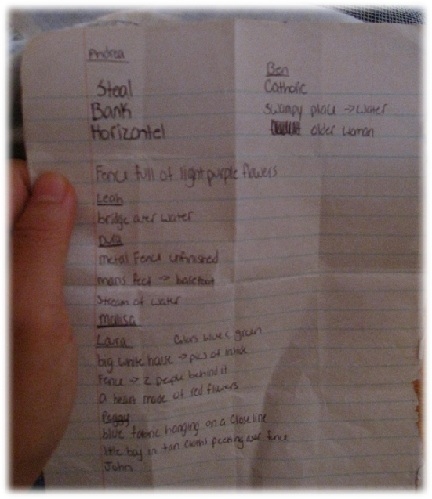 Andrea
Steal
Bank
Horizontel
Fence full of light purple flowers
Leah
bridge over water
metal Fence unfinished
mans feet → barefoot
Stream of water
Melisa
Laura Colors blue & green
big white house → pics of
Fence → 2 people behind it
a heart made of red flowers
Peggy
blue fabric hanging on a close line
little boy in tan outfit peeking over fence
John
Ben
Catholic
Swampy place → water
older woman